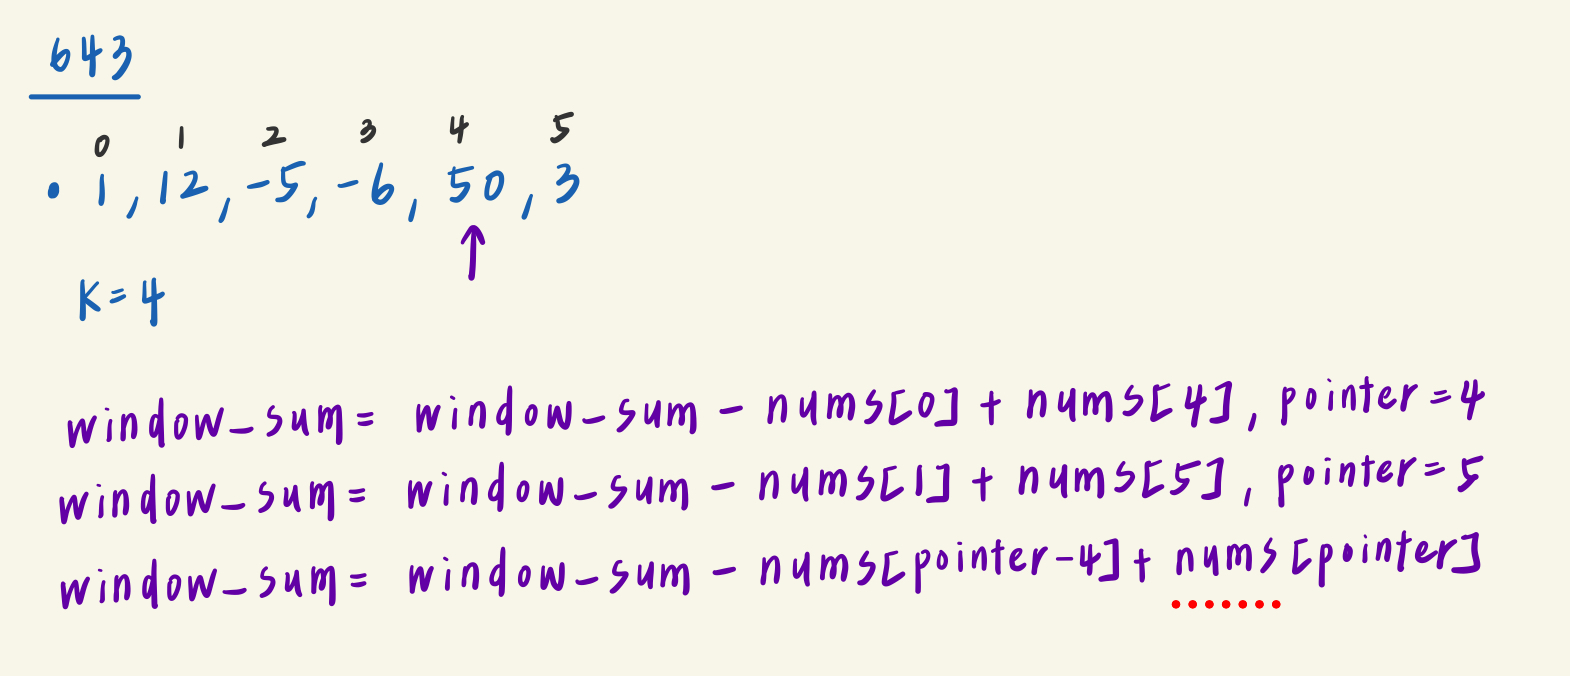 643
0 1 2 3 4 5
• 1, 12, -5, -6, 50, 3
↑
K=4
window_sum= window_sum - nums[0] + nums[4], pointer=4
window_sum= window_sum - nums[1] + nums[5], pointer=5
window_sum= window_sum - nums[pointer-4]+ nums[pointer]